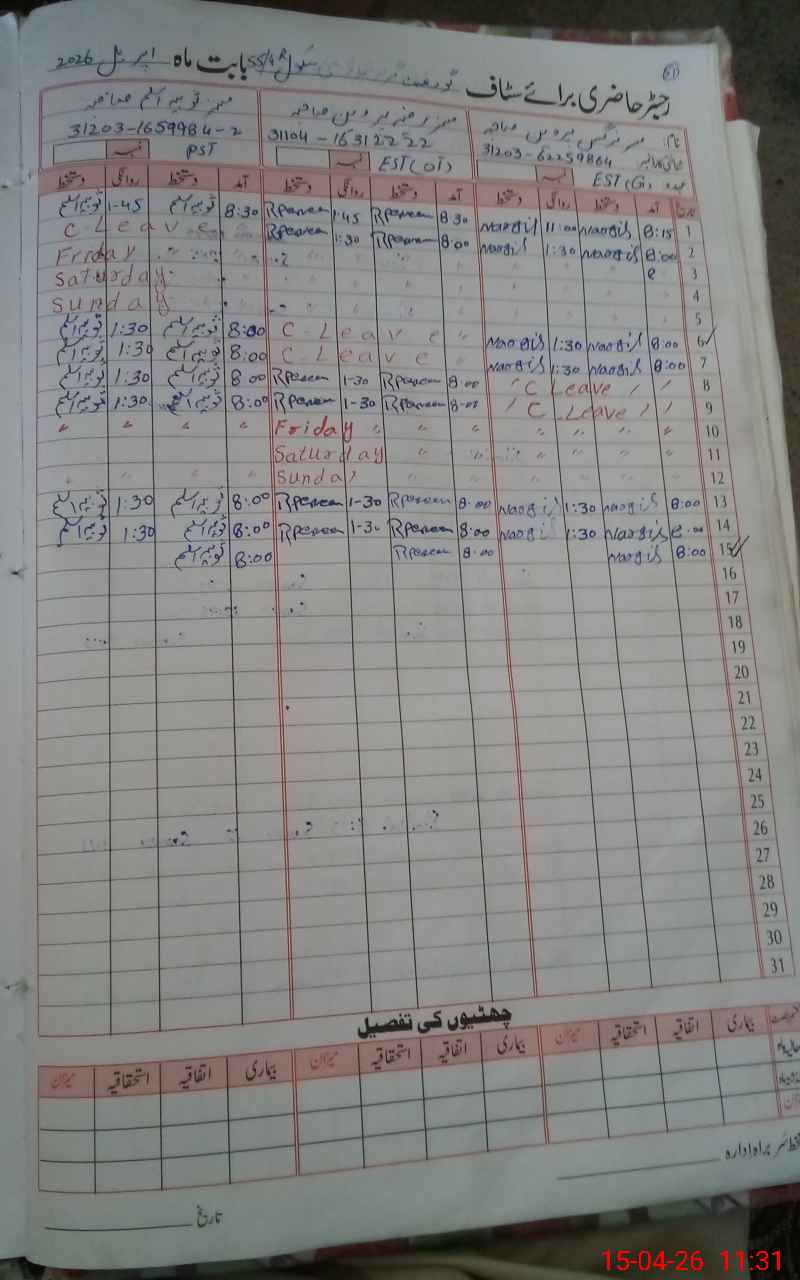 رجسٹر حاضری برائے سٹاف گورنمنٹ گرلز سکول 55/4R بابت ماہ اپریل 2026
نام: مسز نرگس پروین صاحبہ مسز رضیہ پروین صاحبہ مسز ثوبیہ اسلم صاحبہ
31203-62259864 31104-16312222 31203-1659984-2
عہدہ EST(G) نمبر EST(GT) نمبر PST نمبر
تاریخ آمد دستخط روانگی دستخط آمد دستخط روانگی دستخط آمد دستخط روانگی دستخط
1 8:15 Nargis 11:00 Nargis 8:30 RParveen 1:45 RParveen 8:30 ثوبیہ اسلم 1-45 ثوبیہ اسلم
2 8:00 Nargis 1:30 Nargis 8:00 RParveen 1:30 RParveen C-Leave
3 Friday
4 Saturday
5 Sunday
6 8:00 Nargis 1:30 Nargis C-Leave 8:00 ثوبیہ اسلم 1:30 ثوبیہ اسلم
7 8:00 Nargis 1:30 Nargis C-Leave 8:00 ثوبیہ اسلم 1:30 ثوبیہ اسلم
8 C Leave 8:00 RParveen 1-30 RParveen 8:00 ثوبیہ اسلم 1:30 ثوبیہ اسلم
9 C Leave 8:00 RParveen 1-30 RParveen 8:00 ثوبیہ اسلم 1:30 ثوبیہ اسلم
10 Friday
11 Saturday
12 Sunday
13 8:00 Nargis 1:30 Nargis 8:00 RParveen 1-30 RParveen 8:00 ثوبیہ اسلم 1:30 ثوبیہ اسلم
14 8:00 Nargis 1:30 Nargis 8:00 RParveen 1-30 RParveen 8:00 ثوبیہ اسلم 1:30 ثوبیہ اسلم
15 8:00 Nargis 8:00 RParveen 8:00 ثوبیہ اسلم
16
17
18
19
20
21
22
23
24
25
26
27
28
29
30
31
چھٹیوں کی تفصیل
بیماری اتفاقیہ استحقاقیہ میزان بیماری اتفاقیہ استحقاقیہ میزان بیماری اتفاقیہ استحقاقیہ میزان
سربراہ ادارہ
تاریخ
15-04-26 11:31